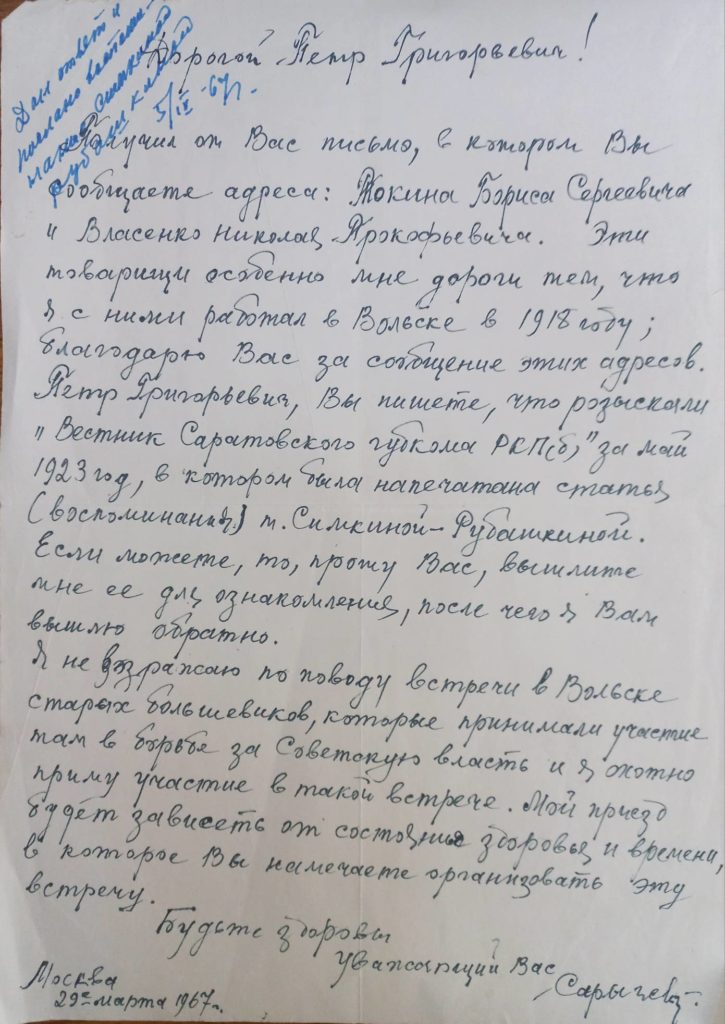 Дал ответ и
послано воспоми-
нание Симкиной
Рубашкиной
5/IX-67г.
Дорогой Петр Григорьевич!
Получил от Вас письмо, в котором Вы
сообщаете адреса: Токина Бориса Сергеевича
и Власенко Николая Прокофьевича. Эти
товарищи особенно мне дороги тем, что
я с ними работал в Вольске в 1918 году;
благодарю Вас за сообщение этих адресов.
Петр Григорьевич, Вы пишете, что розыскали
"Вестник Саратовского губкома РКП(б)" за май
1923 год, в котором была напечатана статья
(воспоминания) т. Симкиной-Рубашкиной.
Если можете, то, прошу Вас, вышлите
мне ее для ознакомления, после чего я Вам
вышлю обратно.
Я не возражаю по поводу встречи в Вольске
старых большевиков, которые принимали участие
там в борьбе за Советскую власть и я охотно
приму участие в такой встрече. Мой приезд
будет зависеть от состояние здоровья и времени,
в которое Вы намечаете организовать эту
встречу.
Будьте здоровы
Уважающий Вас
Сарычев
Москва
29го марта 1967г.